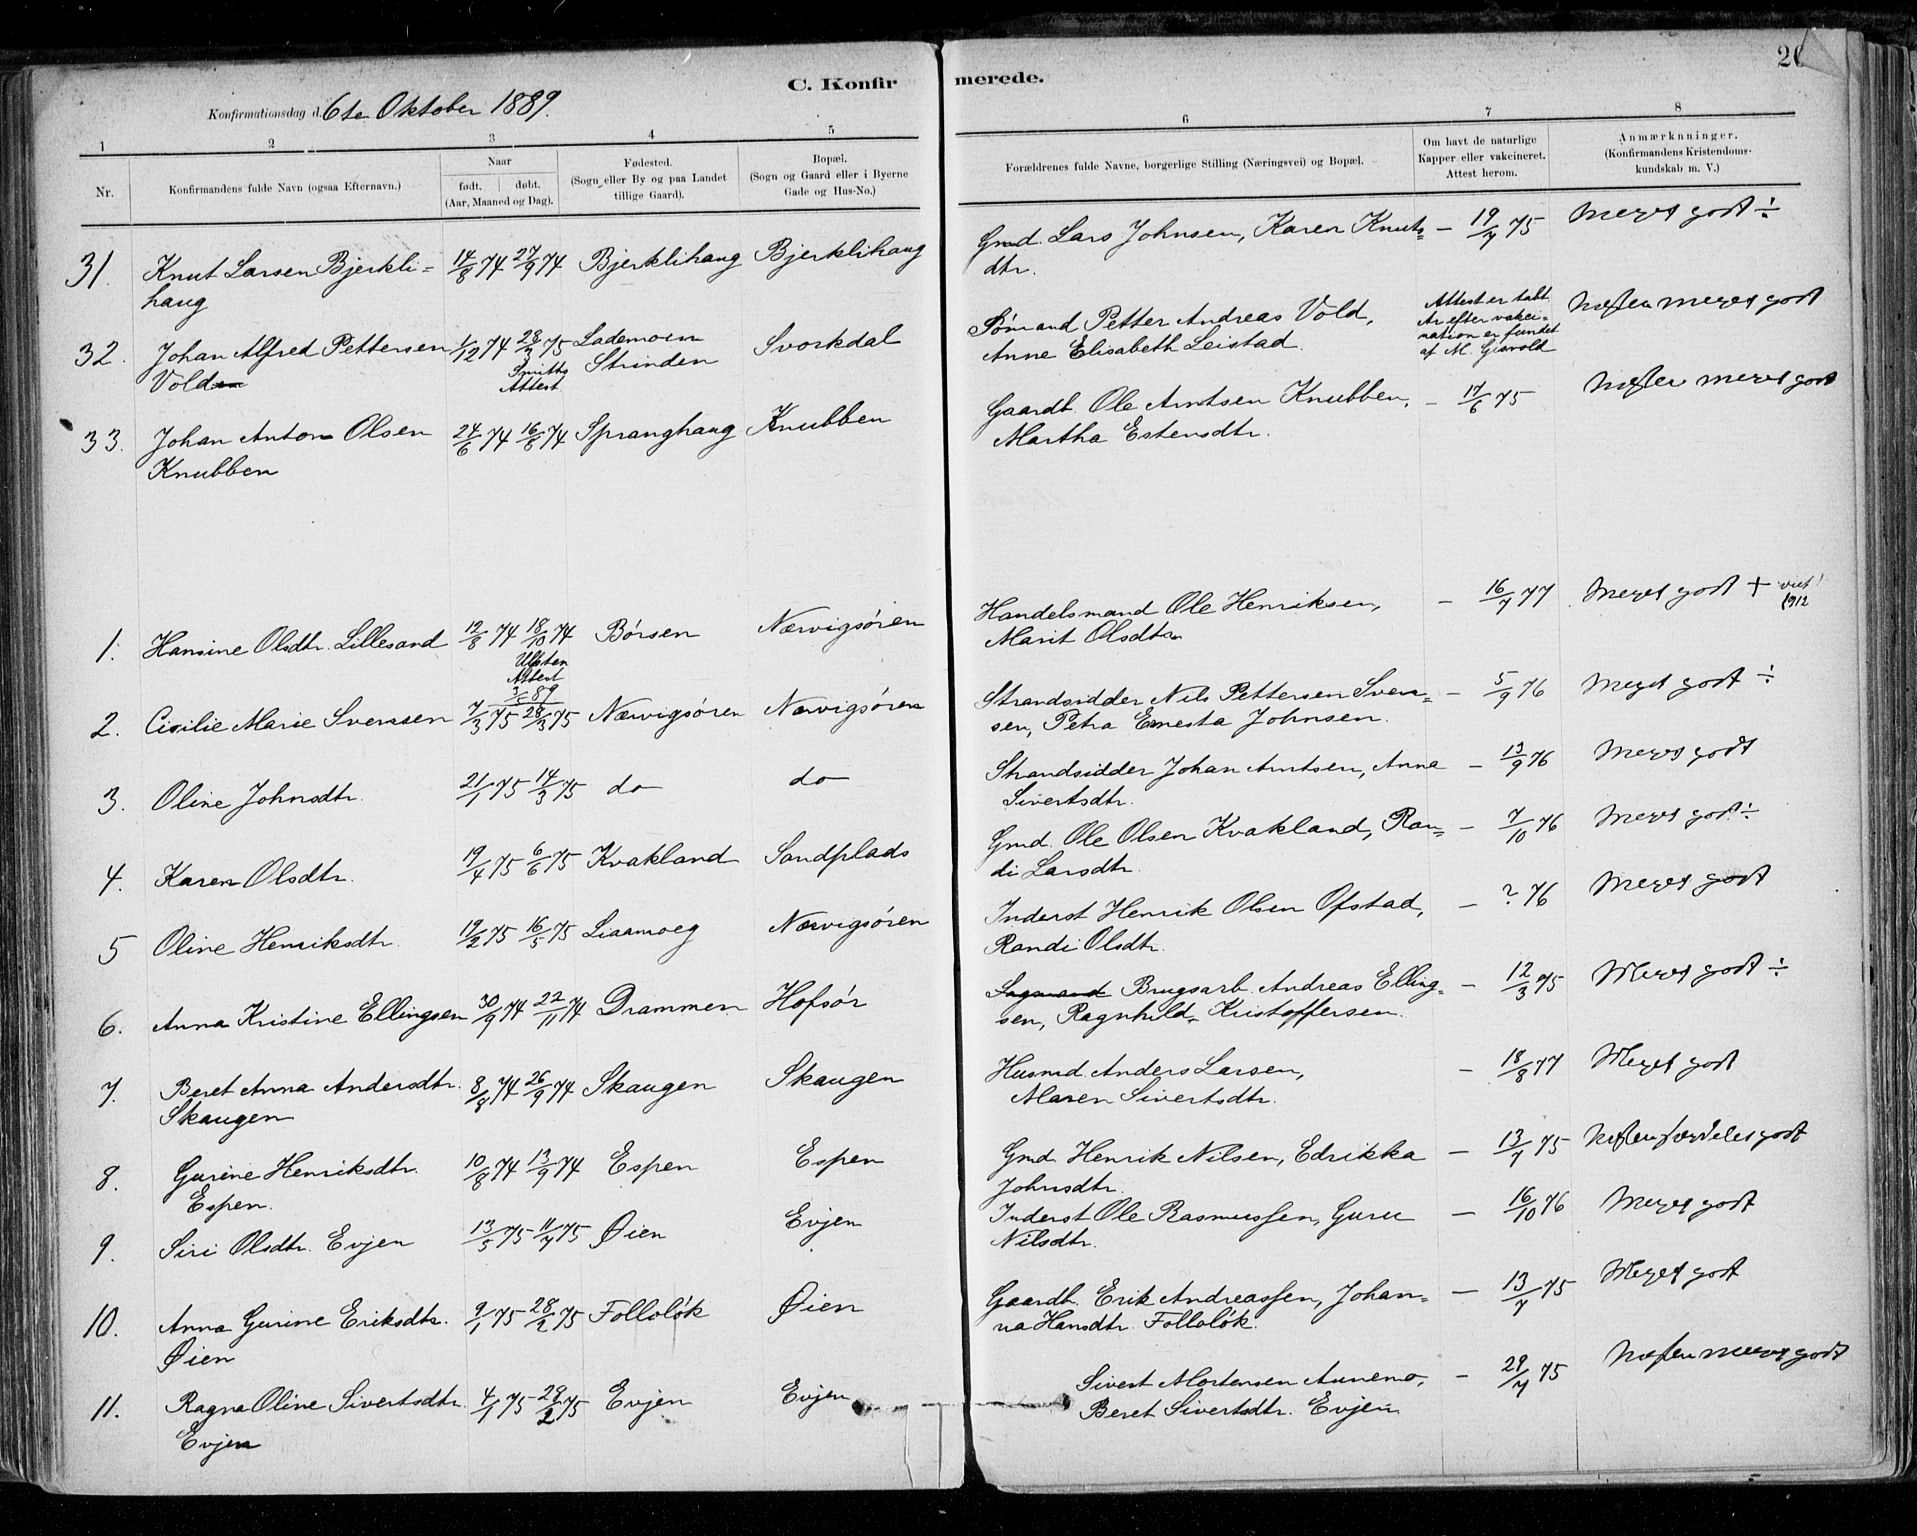 C. Konfirmerede.
Konfirmationsdag d. 6te Oktober 1889.
1 2 3 4 5 6 7 8
Nr.
Konfirmandens fulde Navn (ogsaa Efternavn.)
Naar
født. døbt.
(Aar, Maaned og Dag).
Fødested.
(Sogn eller By og paa Landet
tillige Gaard).
Bopæl.
(Sogn og Gaard eller i Byerne
Gade og Hus-No.)
Forældrenes fulde Navne, borgerlige Stilling (Næringsvei) og Bopæl.
Om havt de naturlige
Kapper eller vakcineret.
Attest herom.
Anmærkninger.
(Konfirmandens Kristendoms-
kundskab m. V.)
31. Knut Larsen Bjerkli- 14/8 74 27/9 74 Bjerklihaug Bjerklihaug Gmd. Lars Johnsen, Karen Knuts= — 19/7 75 Meget godt ÷
haug dtr.
32. Johan Alfred Pettersen 1/12 74 28/3 75 Lademoen Svorkdal Sømand Petter Andreas Vold, Attest er tabt Næsten meget godt
Ar efter vakci-
nation er fundet
af M. Gisvold
Volden Smitts Attest Strinden Anne Elisabeth Leistad.
33. Johan Anton Olsen 24/6 74 16/8 74 Spranghaug Knubben Gaardb. Ole Arntsen Knubben, — 17/6 75 Næsten meget godt
Knubben Martha Estensdtr.
1. Hansine Olsdtr. Lillesand 12/8 74 18/10 74 Børsen Nærvigsøren Handelsmand Ole Henriksen, — 16/7 77 Meget godt + 1912
Attest Marit Olsdtr
3/5 89
2. Cicilie Marie Svensen 7/3 75 28/3 75 Nærvigsøren Nærvigsøren Strandsidder Nils Pettersen Sven= — 5/9 76 Meget godt ÷
sen, Petra Ernesta Johnsen.
3. Oline Johnsdtr. 21/1 75 14/3 75 do do Strandsidder Johan Arntsen, Anna — 13/9 76 Meget godt
Sivertsdtr.
4. Karen Olsdtr. 19/4 75 6/6 75 Kvakland Sandplads Gmd. Ole Olsen Kvakland, Ran= — 7/10 76 Meget godt ÷
di Larsdtr.
5 Oline Henriksdtr. 17/2 75 16/5 75 Liaamoeg Nærvigsøren Inderst Henrik Olsen Ofstad, — ? 76 Meget godt
Randi Olsdtr.
6. Anna Kristine Ellingsen 30/9 74 22/11 74 Drammen Hofsør Sagmand Brugsarb. Andreas Elling= — 12/3 75 Meget godt ÷
sen, Ragnhild Kristoffersen.
7. Beret Anna Andersdtr. 8/8 74 26/9 74 Skaugen Skaugen Husmd. Anders Larsen, — 18/8 77 Meget godt
Skaugen Maren Sivertsdtr.
8. Gurine Henriksdtr. 10/8 74 13/9 74 Espen Espen Gmd. Henrik Nilsen, Edrikka — 13/7 75 Næsten særdeles godt
Espen. Johnsdtr.
9. Siri Olsdtr. Evjen 13/5 75 11/7 75 Øien Evjen Inderst Ole Rasmussen, Guru — 16/10 76 Meget godt
Nilsdtr.
10. Anna Gurine Eriksdtr. 9/1 75 28/2 75 Folloløk Øien Gaardb. Erik Andreassen, Johan= — 13/7 75 Meget godt
Øien na Hansdtr. Folloløk.
11. Ragna Oline Sivertsdtr. 4/1 75 28/2 75 Evjen Evjen Sivert Mortensen Aunemo, — 29/7 75 Næsten meget godt
Evjen Beret Sivertsdtr. Evjen